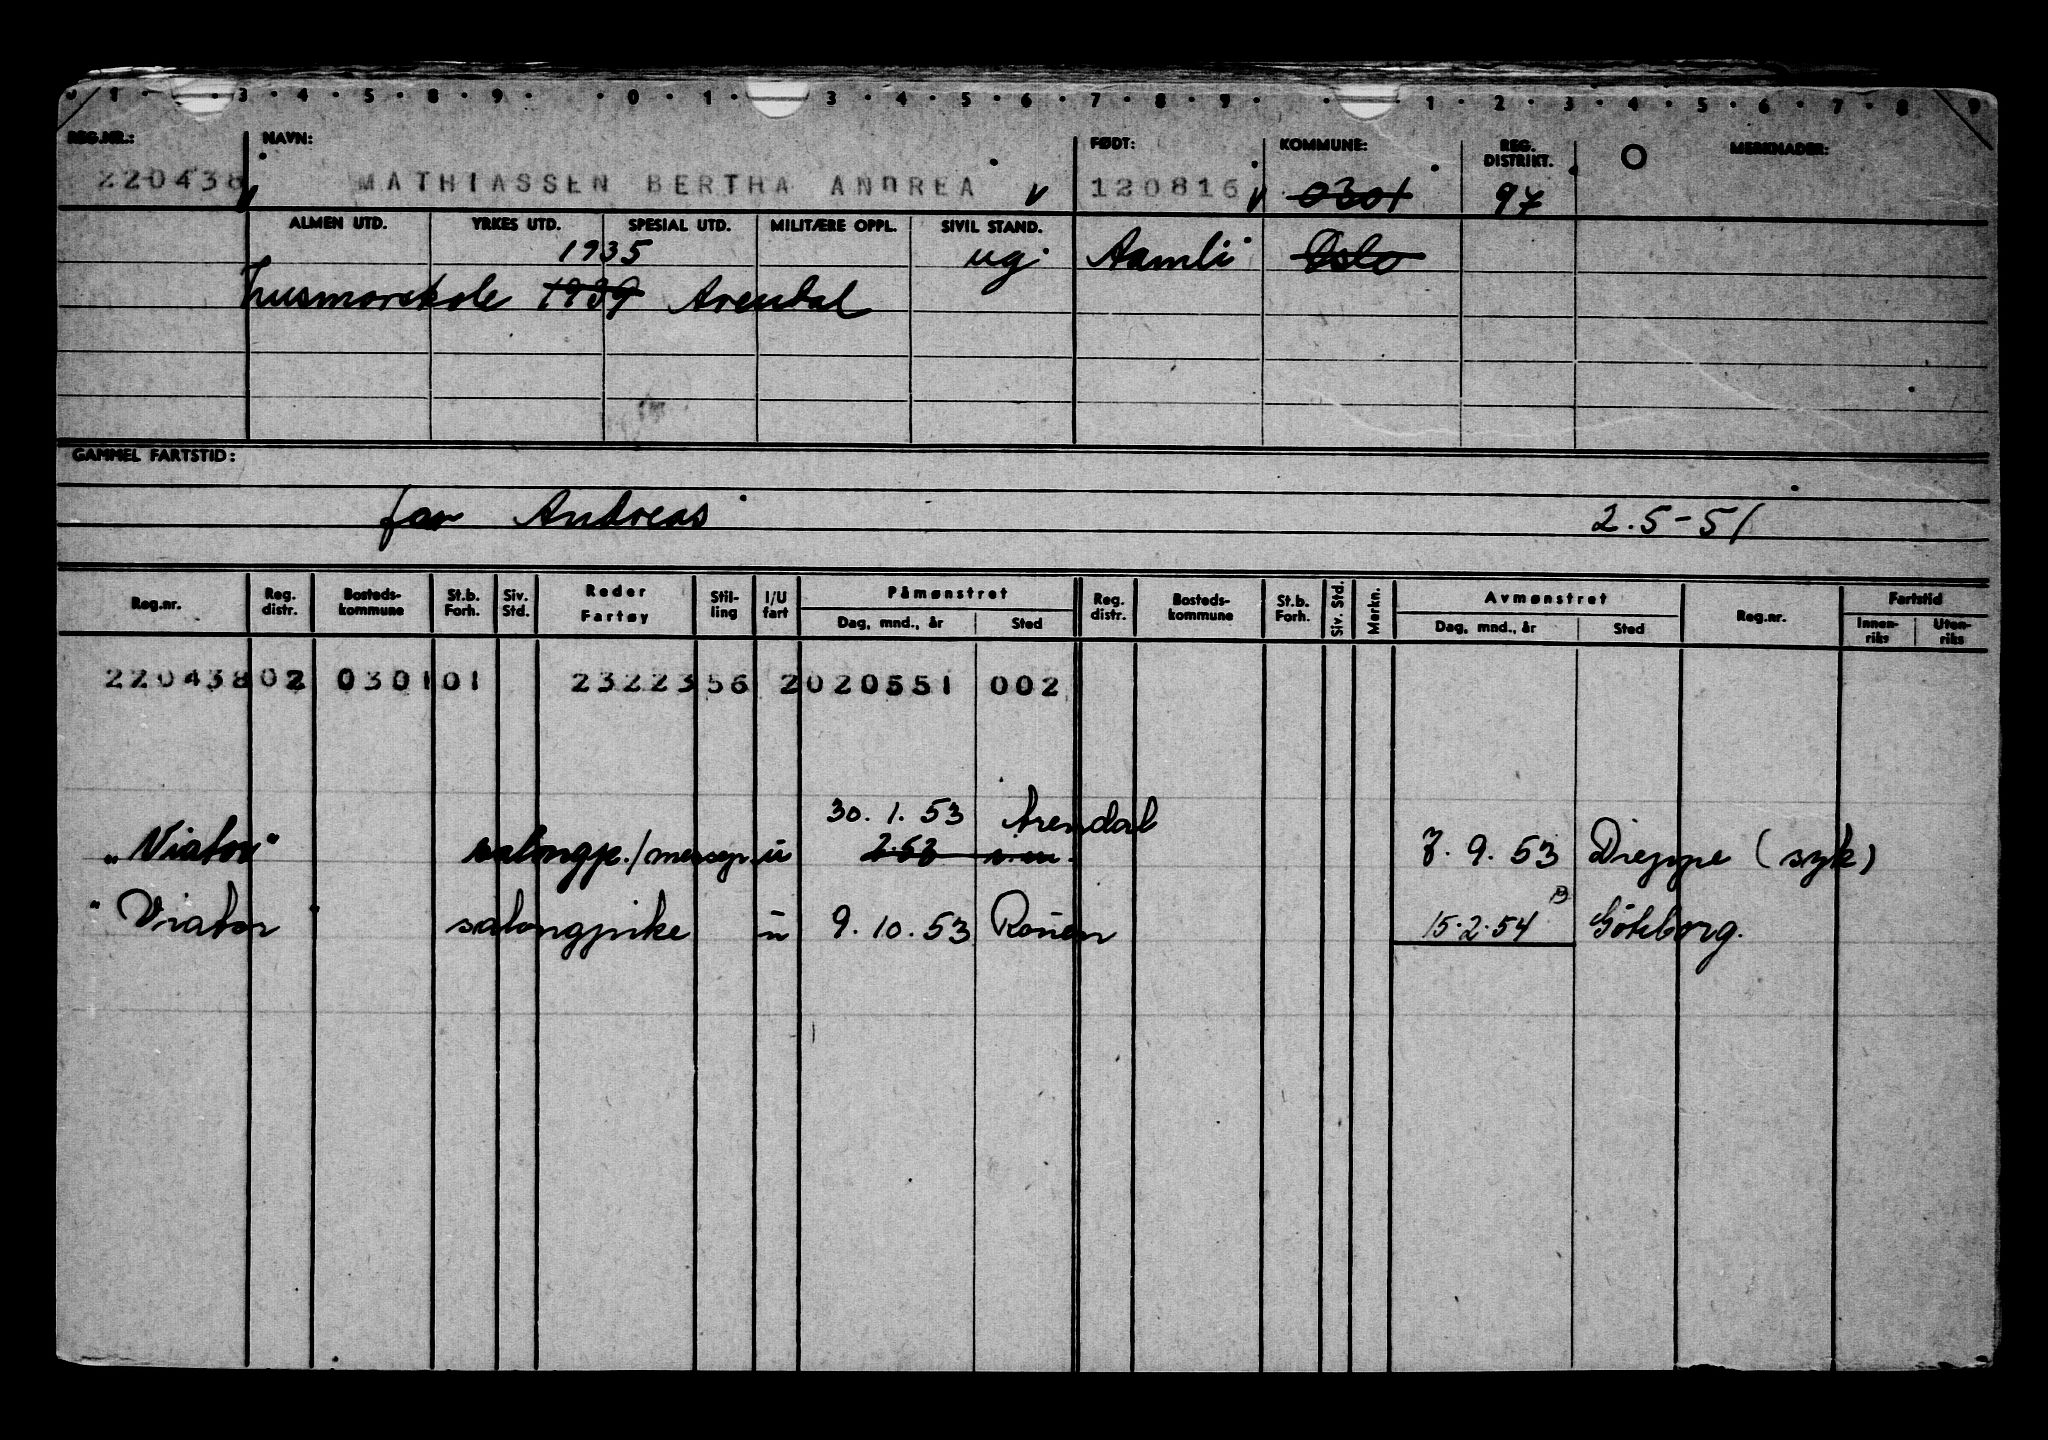 1 · 3 · 4 · 5 · 8 · 9 · · 0 · 1 · 3 · 4 · 5 · 6 · 7 · 8 · 9 · · 1 · 2 · 3 · 4 · 5 · 6 · 7 · 8 9
REG.NR.: NAVN: FØDT: KOMMUNE: REG. DISTRIKT. O MERKNADER:
220438 MATHIASSEN BERTHA ANDREA 120816 0301 97
ALMEN UTD. YRKES UTD. SPESIAL UTD. MILITÆRE OPPL. SIVIL STAND.
1935 ug. Aamli Oslo
husmorskole 1939 Arendal
GAMMEL FARTSTID:
far Andreas 2.5-51
Reg.nr. Reg. distr. Bosteds-kommune St.b. Forh. Siv. Std. Reder Fartøy Stil-ling I/U fart Påmønstret Reg. distr. Bosteds-kommune St.b. Forh. Siv. Std. Merkn. Avmønstret Reg.nr. Fartstid
Dag, mnd., år Sted Dag, mnd., år Sted Innen-riks Uten-riks
220438 02 0301 01 23223 56 2 020551 002
30.1.53 Arendal
"Viator" salongp./messep. u 2.53 7.9.53 Dieppe (syk)
"Viator" salongpike u 9.10.53 Rouen 15.2.54 Göteborg.